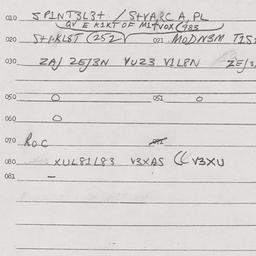 010 SPINT3L3+ / S+VARC A, PL
QV E KIKT OF MI+VOX (983
020 S+I.KLST (252) 021 MODN3M TIS
030 ZAJ ZEJ3N VUZ3 VIL8N ZEJ3
050 O 051 O
060 O
070 ROC
080 XUL81L83 V3XAS ((V3XU
081 –